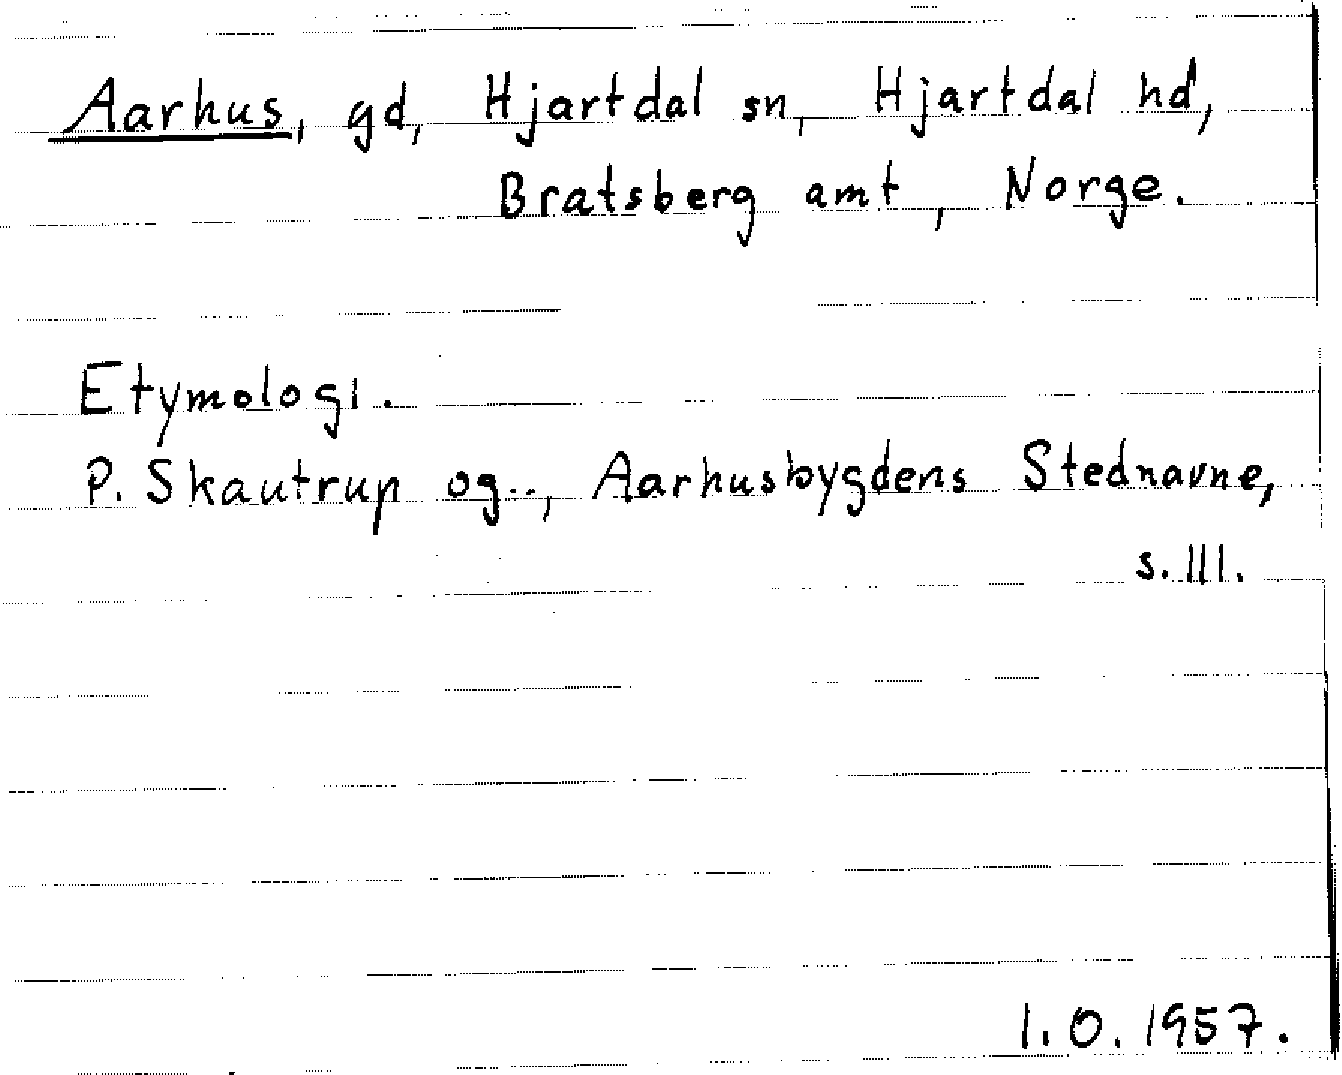 Aarhus, gd, Hjartdal sn, Hjartdal hd,
Bratsberg amt, Norge.
Etymologi.
P. Skautrup og.., Aarhusbygdens Stednavne,
s. 111.
1.0.1957.